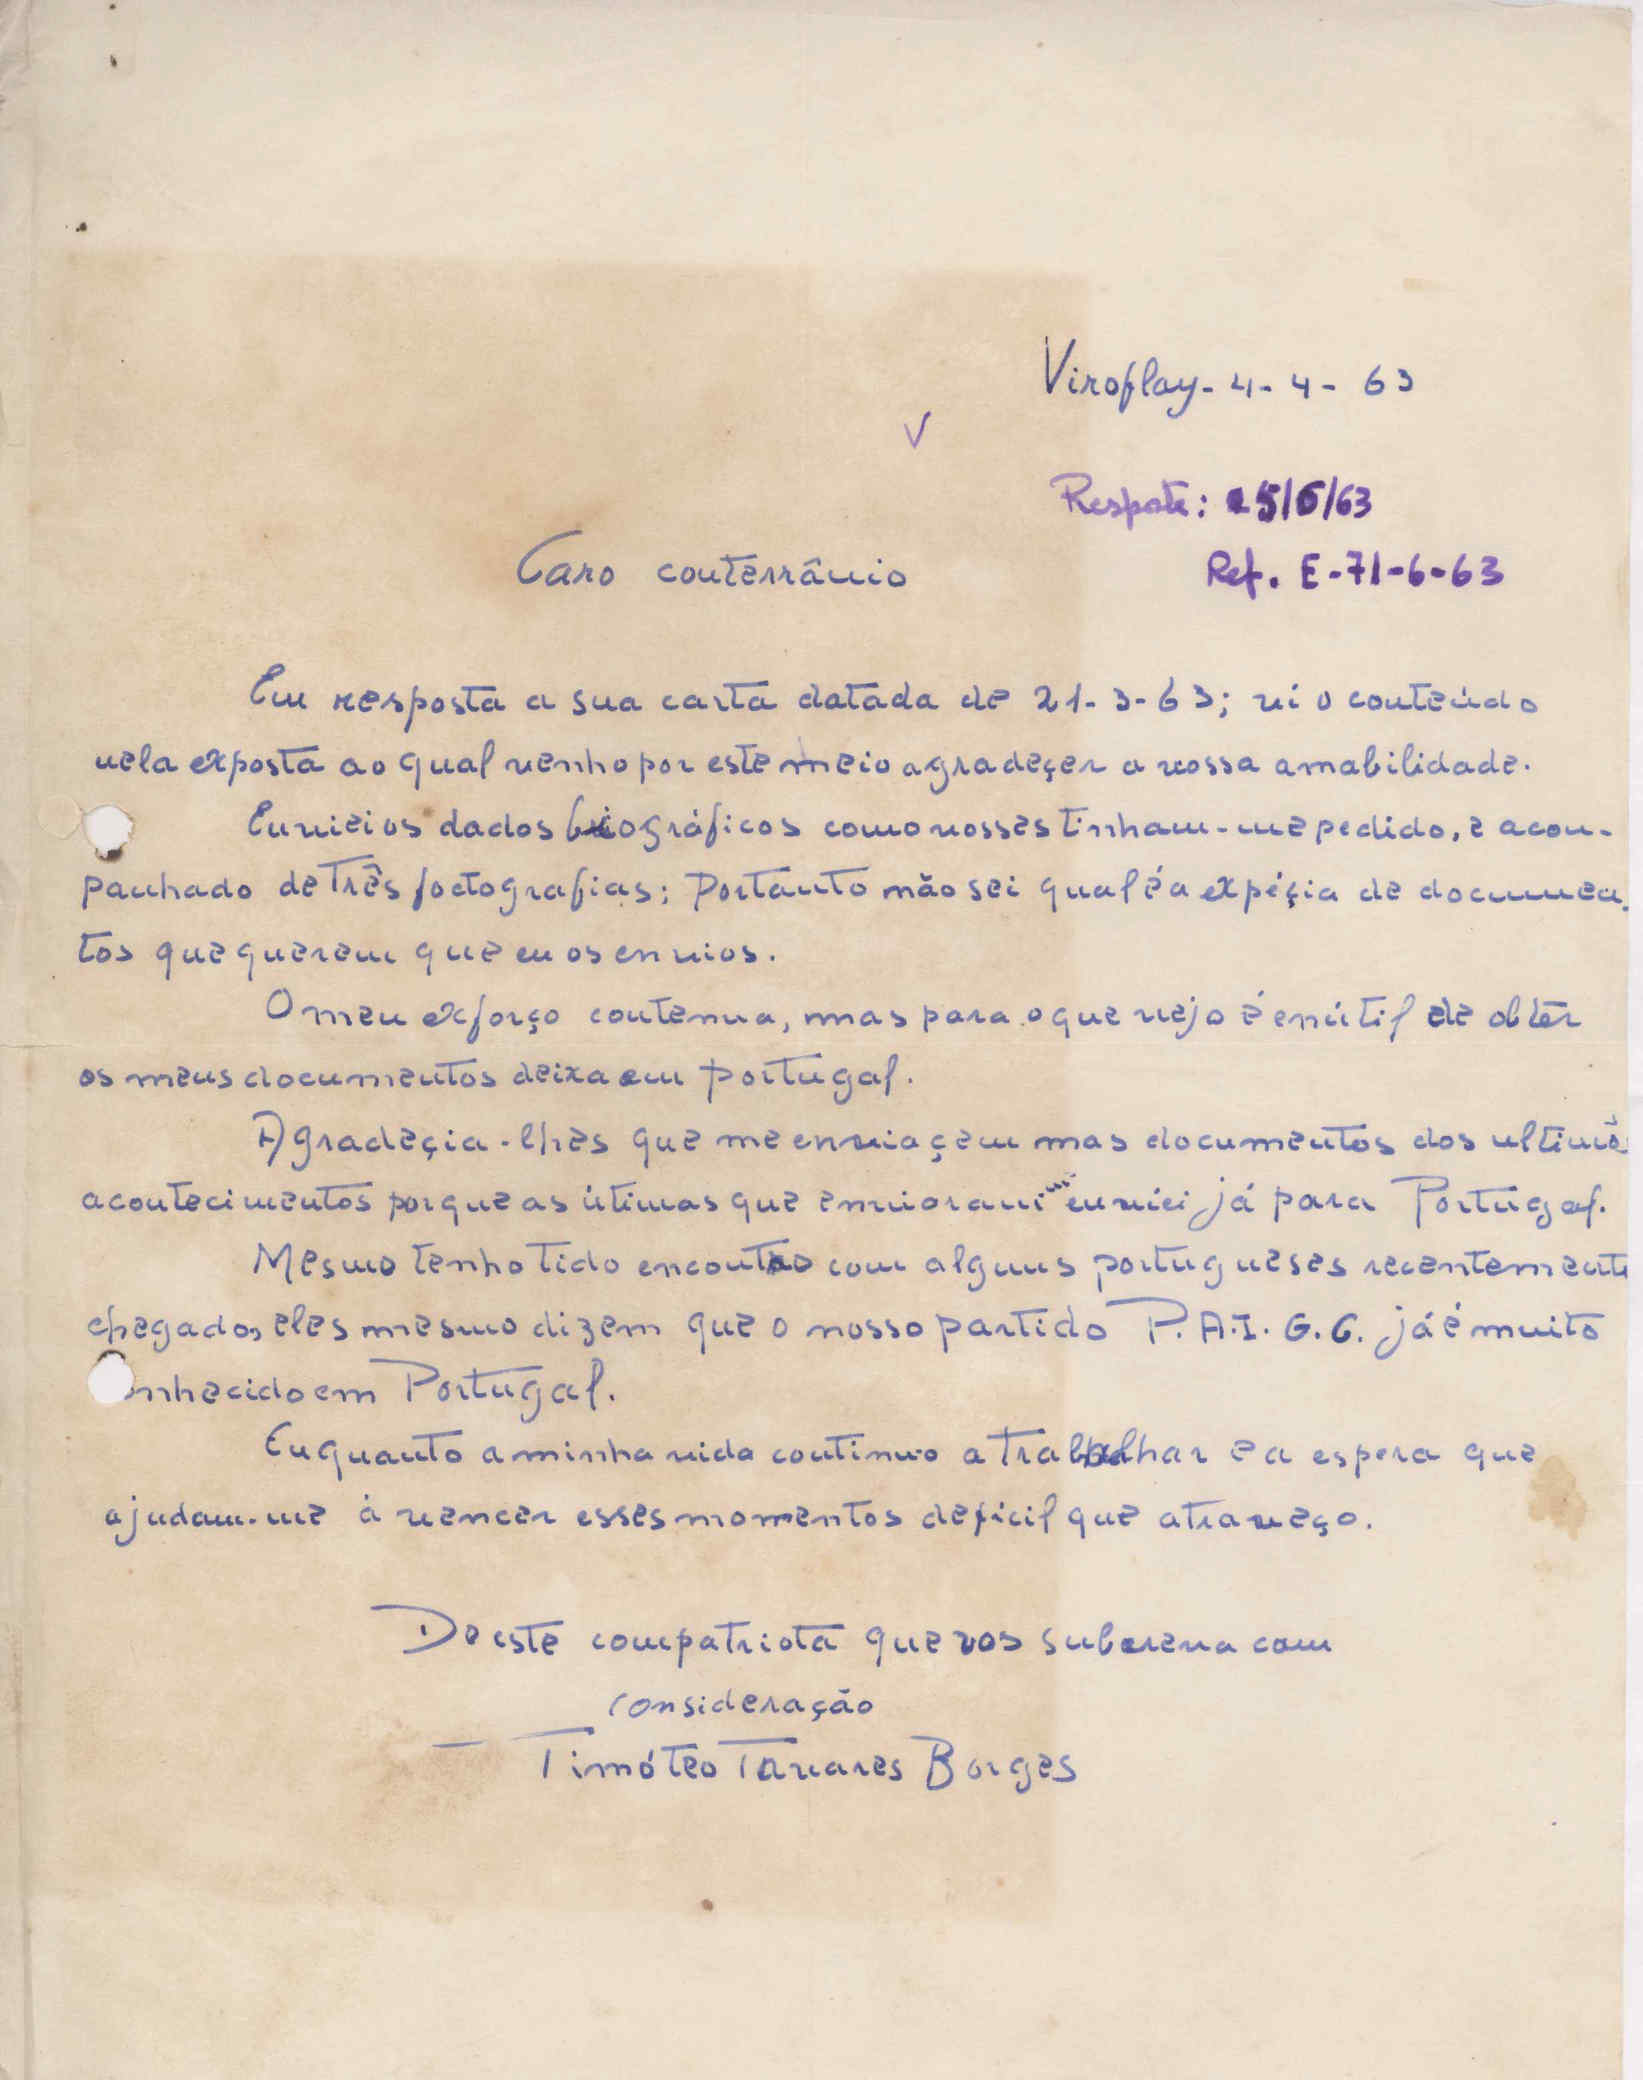 Viroflay - 4 - 4 - 63
V
Resposta: 25/6/63
Caro conterrânio
Ref. E-71-6-63
Em resposta a sua carta datada de 21-3-63; vi o conteúdo
nela exposta ao qual venho por este meio agradeçer a vossa amabilidade.
Enviei os dados biográficos como vosses tinham-me pedido, e acom-
panhado de Três foctografias; Portanto não sei qual é a expéçia de documen-
tos que querem que eu os envios.
O meu exforço contenua, mas para o que vejo é enútil de obter
os meus documentos deixa em portugal.
Agradeçia-lhes que me enviaçem mas documentos dos ultimos
acontecimentos porque as útimas que enviaram-me enviei já para Portugal.
Mesmo tenho tido encontro com alguns portugueses recentemente
chegados, eles mesmo dizem que o nosso partido P.A.I.G.C. já é muito
nhecido em Portugal.
Enquanto a minha vida continuo a trabalhar e a espera que
ajudam-me à vencer esses momentos deficil que atraveço.
De este compatriota que vos subcreva com
consideração
Timóteo Tavares Borges